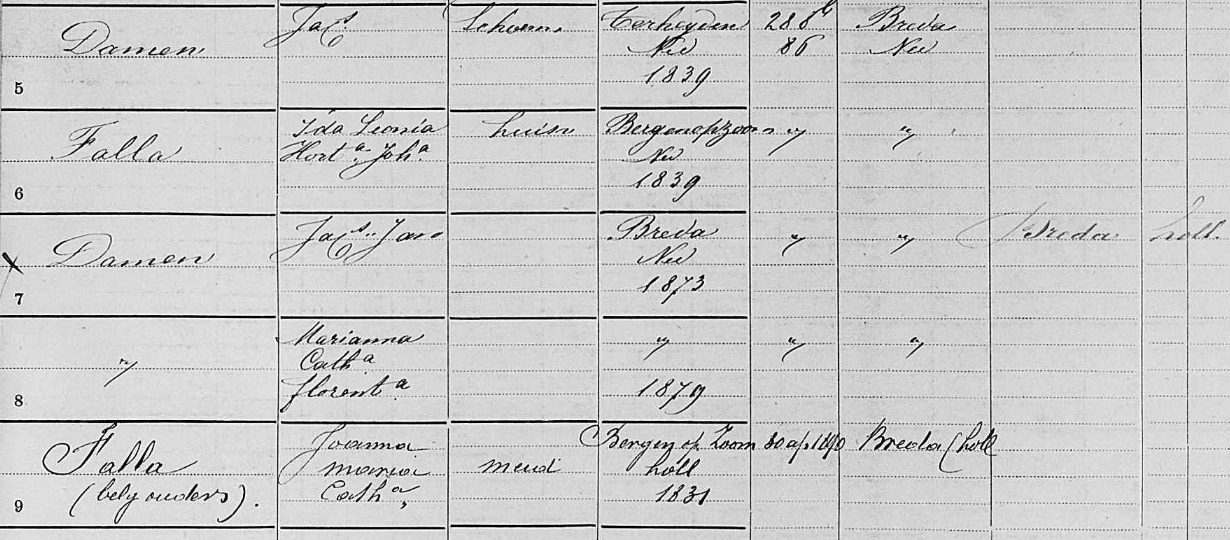 5 Damen Jacs Schoenm Terheyden 28 8br Breda
Ned 86 Ned
1839
6 Falla Ida Leonia huisv Bergenopzoom " "
Horta Joha Ned
1839
7 Damen Jacs Jan Breda " " Breda holl.
Ned
1873
8 " Marianna " " "
Catha
florenta 1879
9 Falla Joanna Bergen op Zoom 30 ap 1890 Breda (holl
(belg ouders). maria meid holl
Catha, 1831